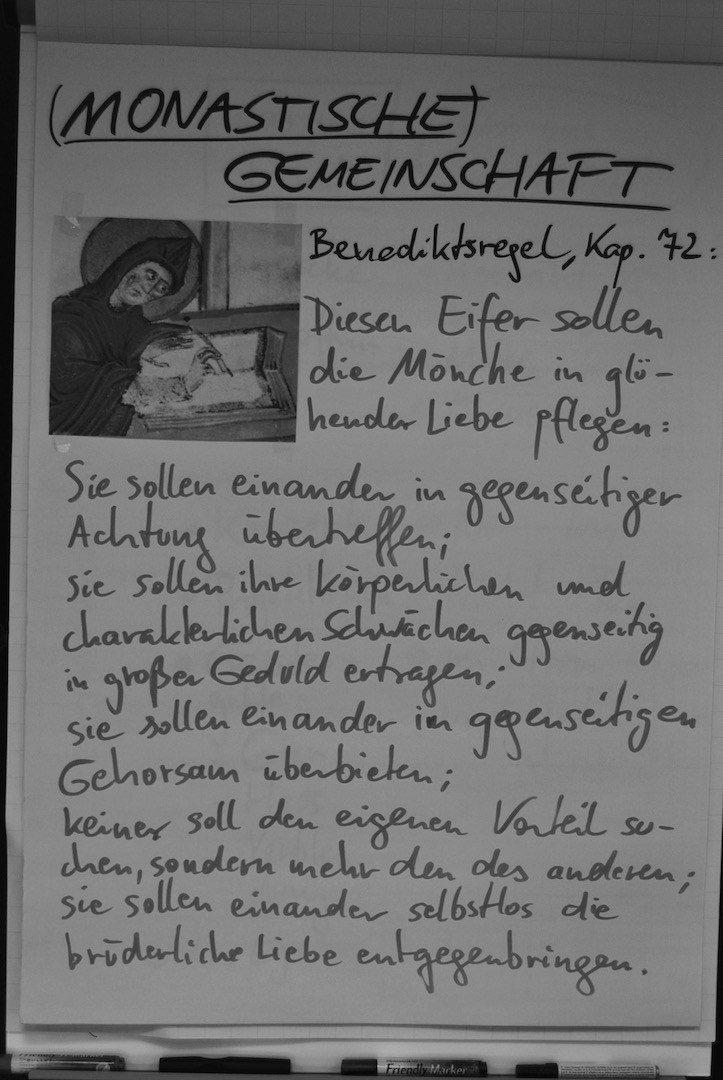 (MONASTISCHE)
GEMEINSCHAFT
Benediktsregel, Kap. 72:
Diesen Eifer sollen
die Mönche in glü-
hender Liebe pflegen:
Sie sollen einander in gegenseitiger
Achtung übertreffen;
sie sollen ihre körperlichen und
charakterlichen Schwächen gegenseitig
in großer Geduld ertragen;
sie sollen einander im gegenseitigen
Gehorsam überbieten;
keiner soll den eigenen Vorteil su-
chen, sondern mehr den des anderen;
sie sollen einander selbstlos die
brüderliche Liebe entgegenbringen.
Friendly Marker